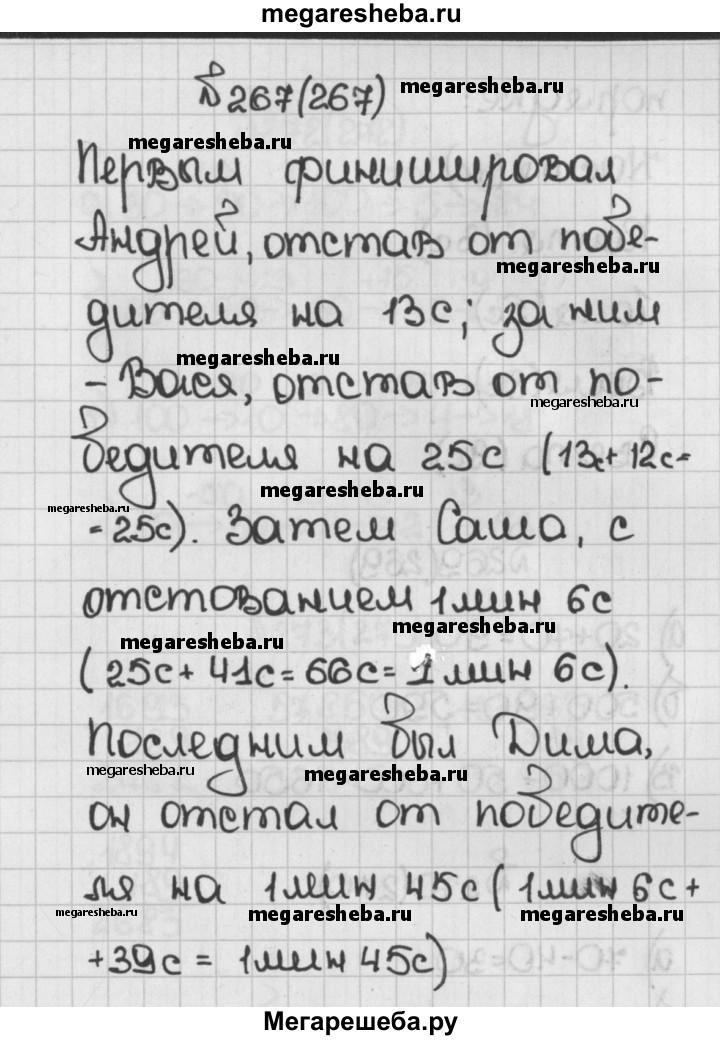 megaresheba.ru
№267(267)
megaresheba.ru
megaresheba.ru
Первым финишировал
Андрей, отстав от побе-
megaresheba.ru
дителя на 13с; за ним
megaresheba.ru
- Вася, отстав от по-
megaresheba.ru
бедителя на 25с (13с+12с=
megaresheba.ru
megaresheba.ru
=25с). Затем Саша, с
отстованием 1мин 6с
megaresheba.ru
megaresheba.ru
(25с+41с=66с=1мин 6с).
Последним был Дима,
megaresheba.ru
megaresheba.ru
он отстал от победите-
ля на 1мин 45с (1мин 6с+
megaresheba.ru
megaresheba.ru
megaresheba.ru
+39с = 1мин 45с)
Мегарешеба.ру